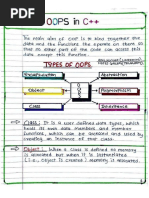 OOPS in C++
The main aim of OOP is to bind together the
data and the functions that operate on them so
that no other part of the code can access this
data except this function.
TYPES OF OOPS
Encapsulation
Abstraction
Object
Polymorphism
Class
Inheritance
→ Class : It is a user defined data types, which
has its own data member and member
functions, which can be accessed and used by
creating an instance of that class.
→ Object : When a class is defined no memory
is allocated but when it is instantiated
(i.e. object is created) memory is allocated